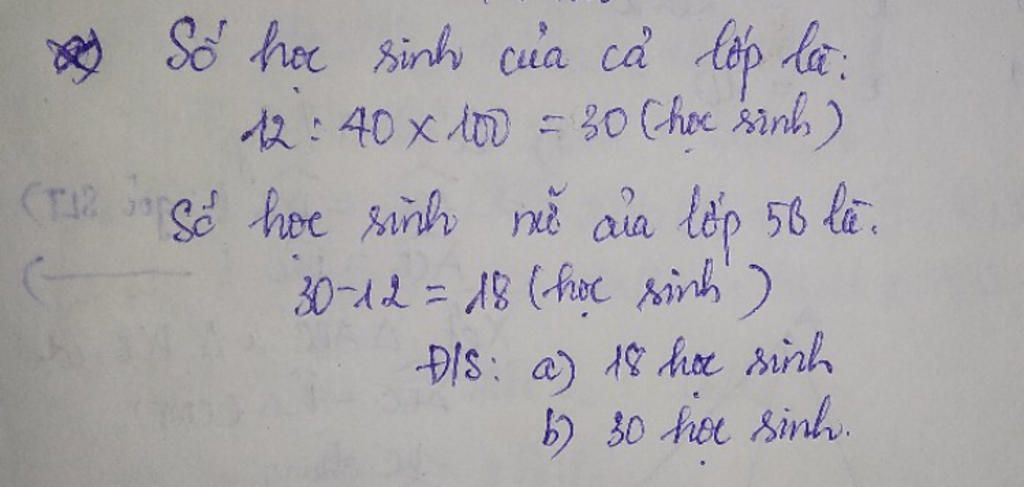 Số học sinh của cả lớp là:
12 : 40 x 100 = 30 (học sinh)
Số học sinh nữ của lớp 5B là.
30 - 12 = 18 (học sinh)
Đ/S: a) 18 học sinh
b) 30 học sinh.